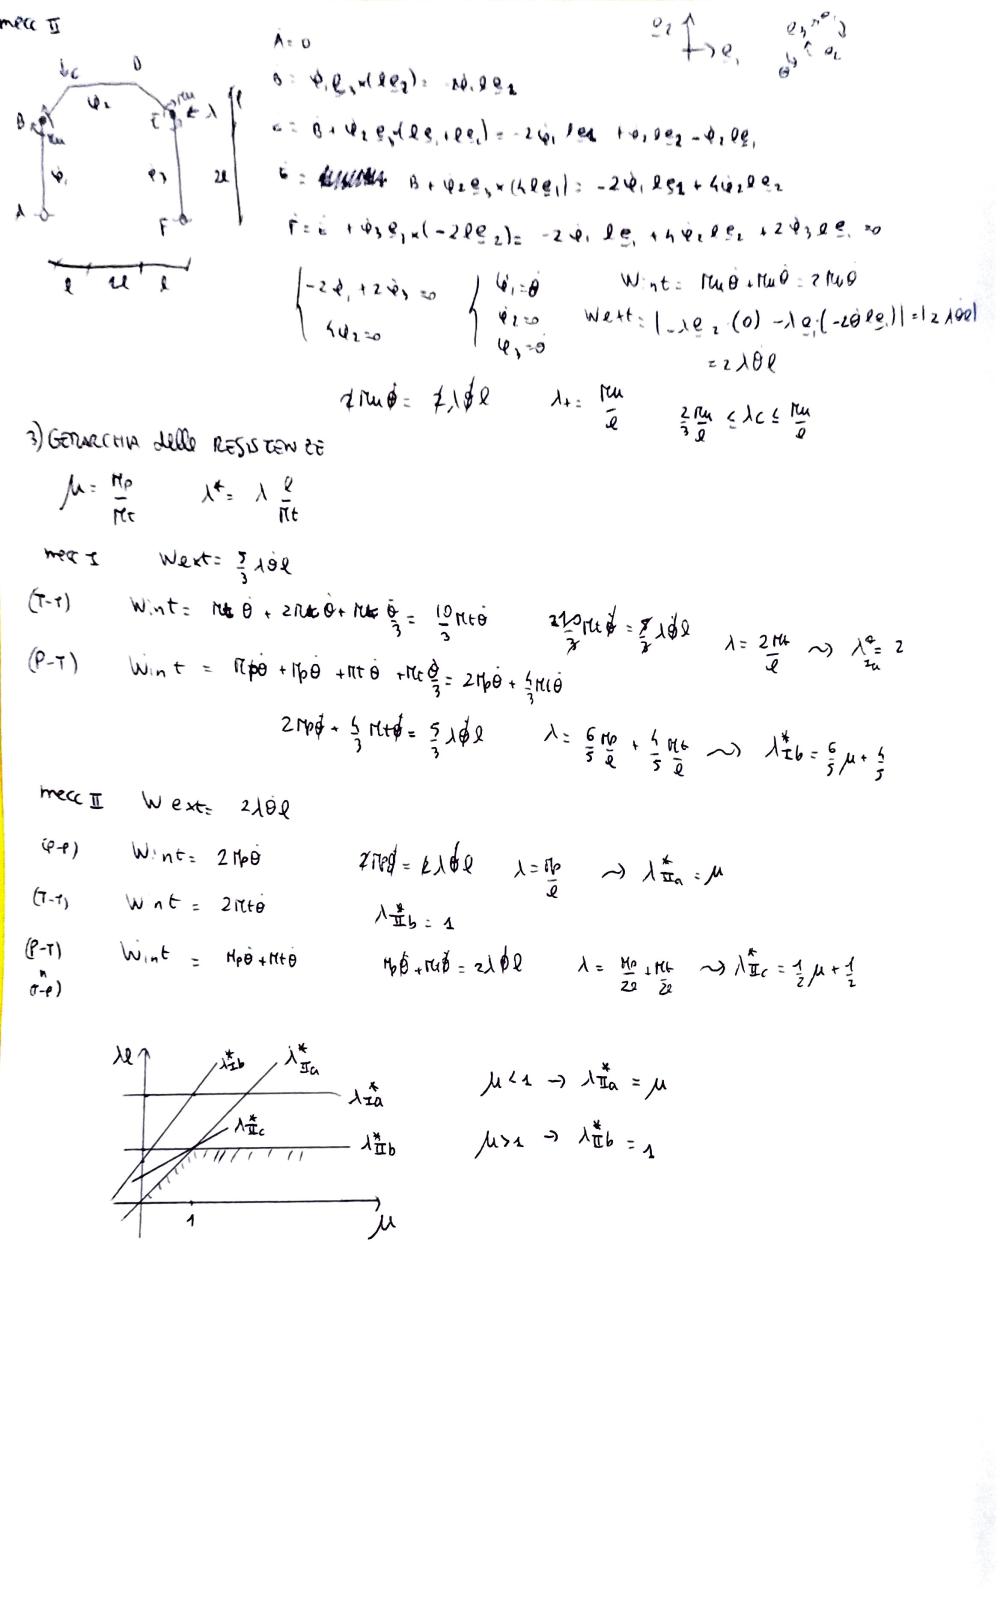 mecc II
e2 e1
A = 0
B = φ1 e3 × (2l e2) = -2φ1 l e1
C = B + φ2 e3 × (l e1 + l e2) = -2φ1 l e1 + φ2 l e2 - φ2 l e1
E = B + φ2 e3 × (4l e1) = -2φ1 l e1 + 4φ2 l e2
F = E + φ3 e3 × (-2l e2) = -2φ1 l e1 + 4φ2 l e2 + 2φ3 l e1 = 0
B C D E A F
φ1 φ2 φ3 Mu Mu λ 2l
l 2l l
-2φ1 + 2φ3 = 0
4φ2 = 0
φ1 = θ
φ2 = 0
φ3 = θ
Wint = Muθ + Muθ = 2Muθ
Wext = |-λe2 · (0) - λe1 · (-2θ l e1)| = |2λθl|
= 2λθl
2Muθ = 2λθl λ+ = Mu/l 2/3 Mu/l ≤ λc ≤ Mu/l
3) GERARCHIA delle RESISTENZE
μ = Mp/Mt λ* = λ l/Mt
mecc I Wext = 5/3 λθl
(T-T) Wint = Mtθ + 2Mtθ + Mt θ/3 = 10/3 Mtθ 10/3 Mtθ = 5/3 λθl λ = 2Mt/l ⤳ λ*Ia = 2
(P-T) Wint = Mpθ + Mpθ + Mtθ + Mt θ/3 = 2Mpθ + 4/3 Mtθ
2Mpθ + 4/3 Mtθ = 5/3 λθl λ = 6/5 Mp/l + 4/5 Mt/l ⤳ λ*Ib = 6/5 μ + 4/5
mecc II Wext = 2λθl
(P-P) Wint = 2Mpθ 2Mpθ = 2λθl λ = Mp/l ⤳ λ*IIa = μ
(T-T) Wint = 2Mtθ λ*IIb = 1
(P-T) Wint = Mpθ + Mtθ Mpθ + Mtθ = 2λθl λ = Mp/2l + Mt/2l ⤳ λ*IIc = 1/2 μ + 1/2
(T-P)
λ*Ib λ*IIa
λ*Ia
λ*IIc
λ*IIb
1 μ
μ<1 → λ*IIa = μ
μ>1 → λ*IIb = 1